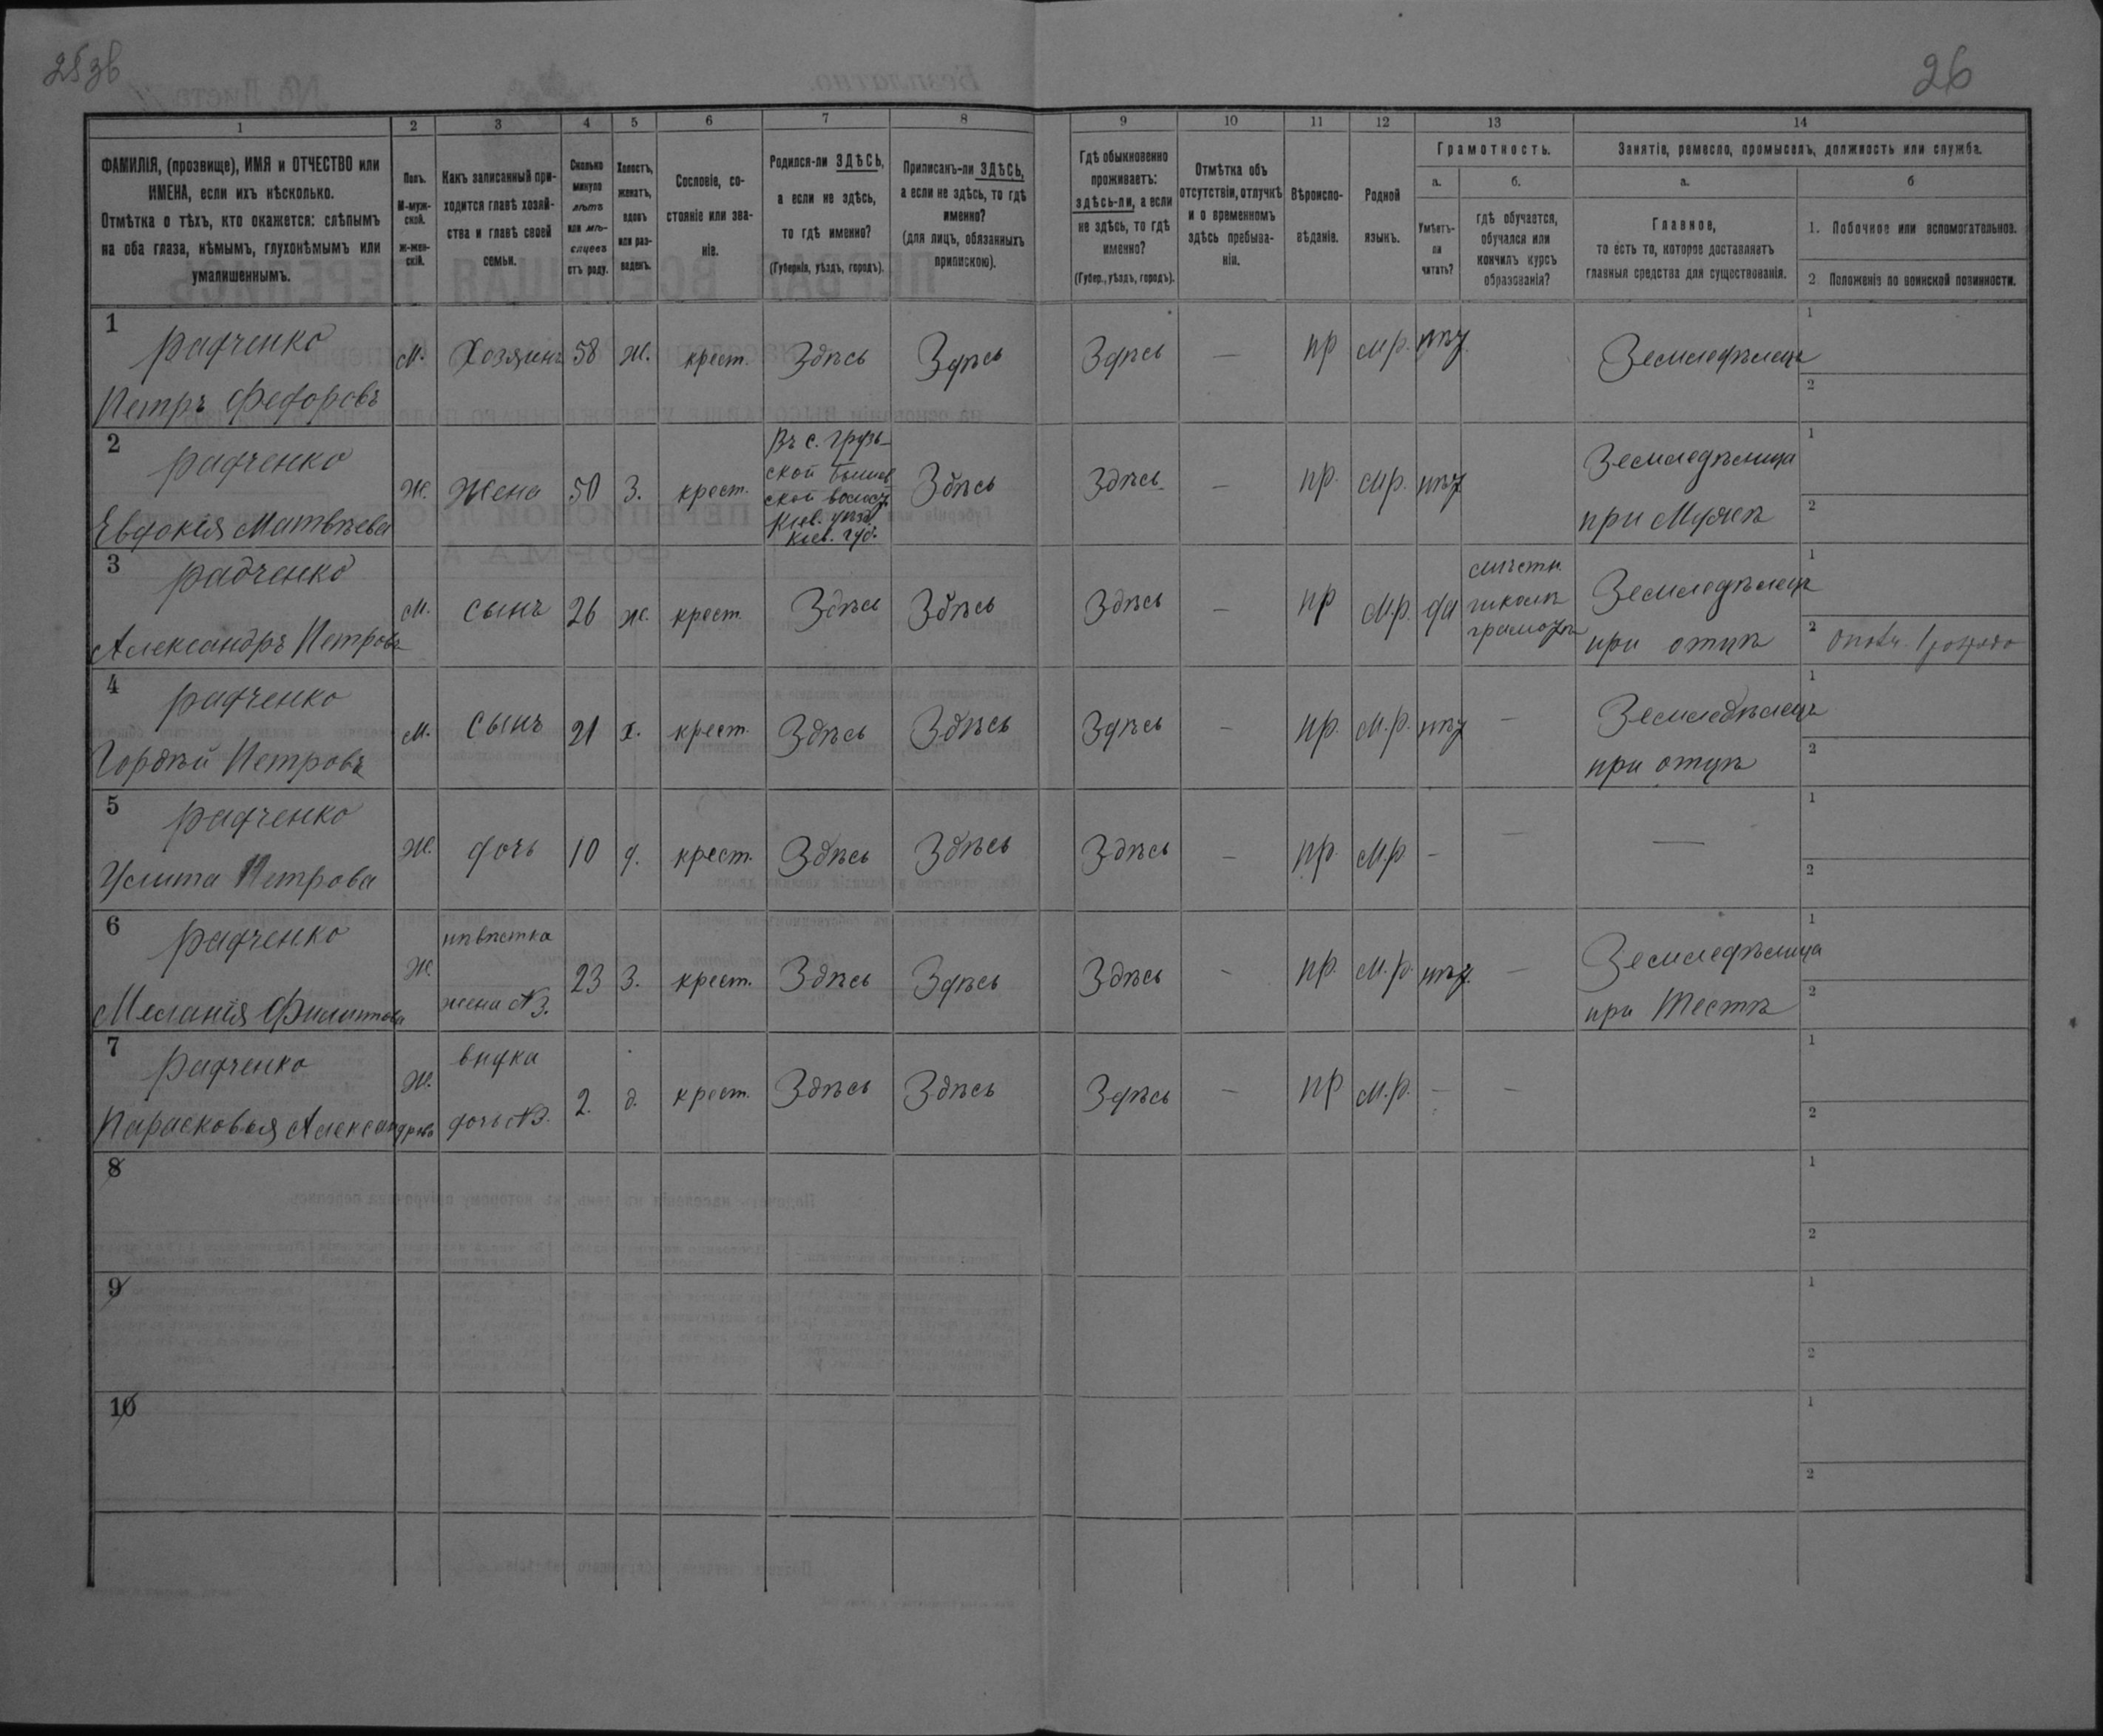 25зв
26
1
2
3
4
5
6
7
8
9
10
11
12
13
14
ФАМИЛІЯ, (прозвище), ИМЯ и ОТЧЕСТВО или
ИМЕНА, если ихъ нѣсколько.
Отмѣтка о тѣхъ, кто окажется: слѣпымъ
на оба глаза, нѣмымъ, глухонѣмымъ или
умалишеннымъ.
Полъ.
М-муж-
ской.
Ж-жен-
скій.
Какъ записанный при-
ходится главѣ хозяй-
ства и главѣ своей
семьи.
Сколько
минуло
лѣтъ
или мѣ-
сяцевъ
отъ роду.
Холостъ,
женатъ,
вдовъ
или раз-
веденъ.
Сословіе, со-
стояніе или зва-
ніе.
Родился-ли ЗДѢСЬ,
а если не здѣсь,
то гдѣ именно?
(Губернія, уѣздъ, городъ).
Приписанъ-ли ЗДѢСЬ,
а если не здѣсь, то гдѣ
именно?
(для лицъ, обязанныхъ
припискою).
Гдѣ обыкновенно
проживаетъ:
здѣсь-ли, а если
не здѣсь, то гдѣ
именно?
(Губер., уѣздъ, городъ).
Отмѣтка объ
отсутствіи, отлучкѣ
и о временномъ
здѣсь пребыва-
ніи.
Вѣроиспо-
вѣданіе.
Родной
языкъ.
Грамотность.
а.
Умѣетъ-
ли
читать?
б.
гдѣ обучается,
обучался или
кончилъ курсъ
образованія?
Занятіе, ремесло, промыселъ, должность или служба.
а.
Главное,
то есть то, которое доставляетъ
главныя средства для существованія.
б
1. Побочное или вспомогательное.
2 Положеніе по воинской повинности.
1
Радченко
Петръ Федоровъ
М.
Хозяинъ
58
Ж.
крест.
Здѣсь
Здѣсь
Здѣсь
—
пр
м.р.
нѣт
Земледѣлецъ
1
2
2
Радченко
Евдокія Матвѣева
Ж.
Жена
50
З.
крест.
Въ с. Грузь-
ской
ской волост.
Кіев. уѣзд.
Кіев. губ.
Здѣсь
Здѣсь
—
пр.
м.р.
нѣт
Земледѣлица
при Мужѣ
1
2
3
Радченко
Александръ Петровъ
М.
сынъ
26
ж.
крест.
Здѣсь
Здѣсь
Здѣсь
—
пр
м.р.
да
мѣстн.
школѣ
грамотѣ
Земледѣлецъ
при отцѣ
1
2
4
Радченко
Гордѣй Петровъ
М.
Сынъ
21
х.
крест.
Здѣсь
Здѣсь
Здѣсь
—
пр.
м.р.
нѣт
—
Земледѣлецъ
при отцѣ
1
2
5
Радченко
Улита Петрова
Ж.
дочь
10
д.
крест.
Здѣсь
Здѣсь
Здѣсь
—
пр.
м.р.
—
—
—
1
2
6
Радченко
Меланія Филиппова
Ж.
невѣстка
жена №3.
23
З.
крест.
Здѣсь
Здѣсь
Здѣсь
-
пр.
м.р.
нѣт.
—
Земледѣлица
при Тестѣ
1
2
7
Радченко
Парасковья Александрова
Ж.
внука
дочь №3.
2.
д.
крест.
Здѣсь
Здѣсь
Здѣсь
—
пр
м.р.
—
—
1
2
8
1
2
9
1
2
10
1
2